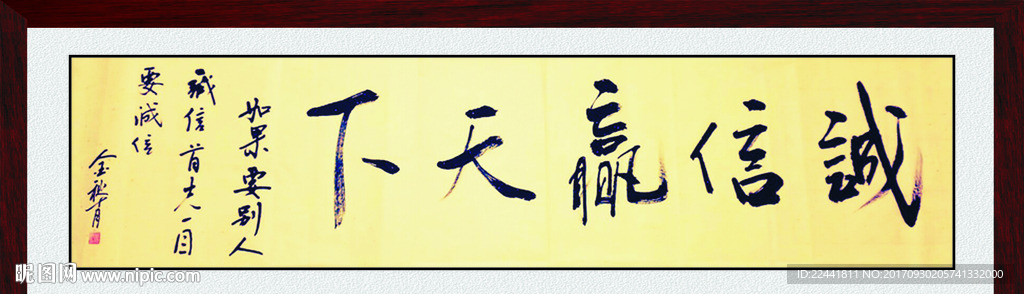 誠信贏天下
如果要别人
誠信首先自
要诚信
昵图网 www.nipic.com
ID:22441811 NO:20170930205741332000